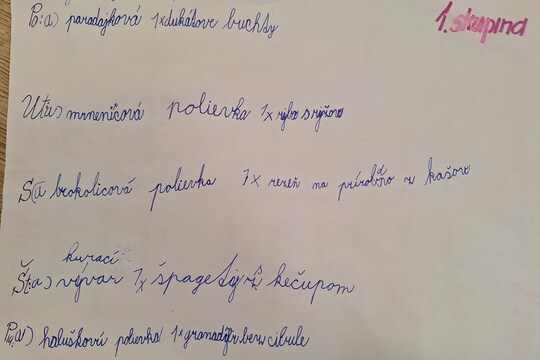 1. skupina
P: a) paradajková 1x dukátove buchty
Ut: a) mrneničová polievka 1x ryba s ryžov
S: a brokolicová polievka 1x rezeň na prírodno z kašov
kurací
Št: a) vývar 1x špagety s kečupom
Pia: a) haluškoví polievka 1x granadýr bez cibule